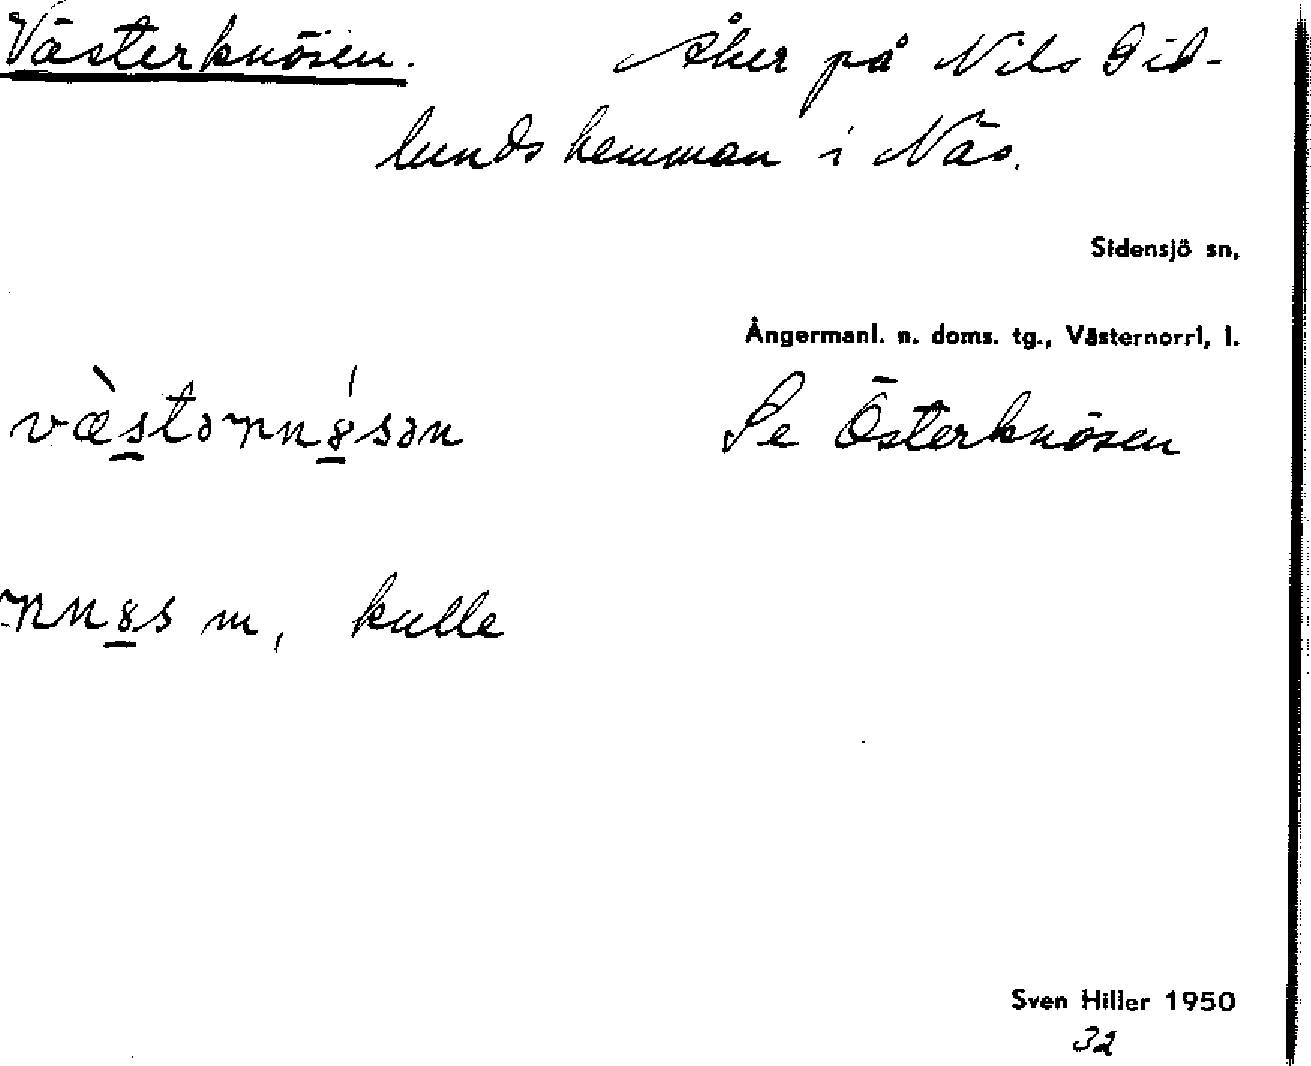 Västerknösen. Åker på Nils Gid-
lunds hemman i Näs.
Sidensjö sn,
Ångermanl. n. doms. tg., Västernorrl, l.
Se Österknösen
m, kulle
Sven Hiller 1950
32